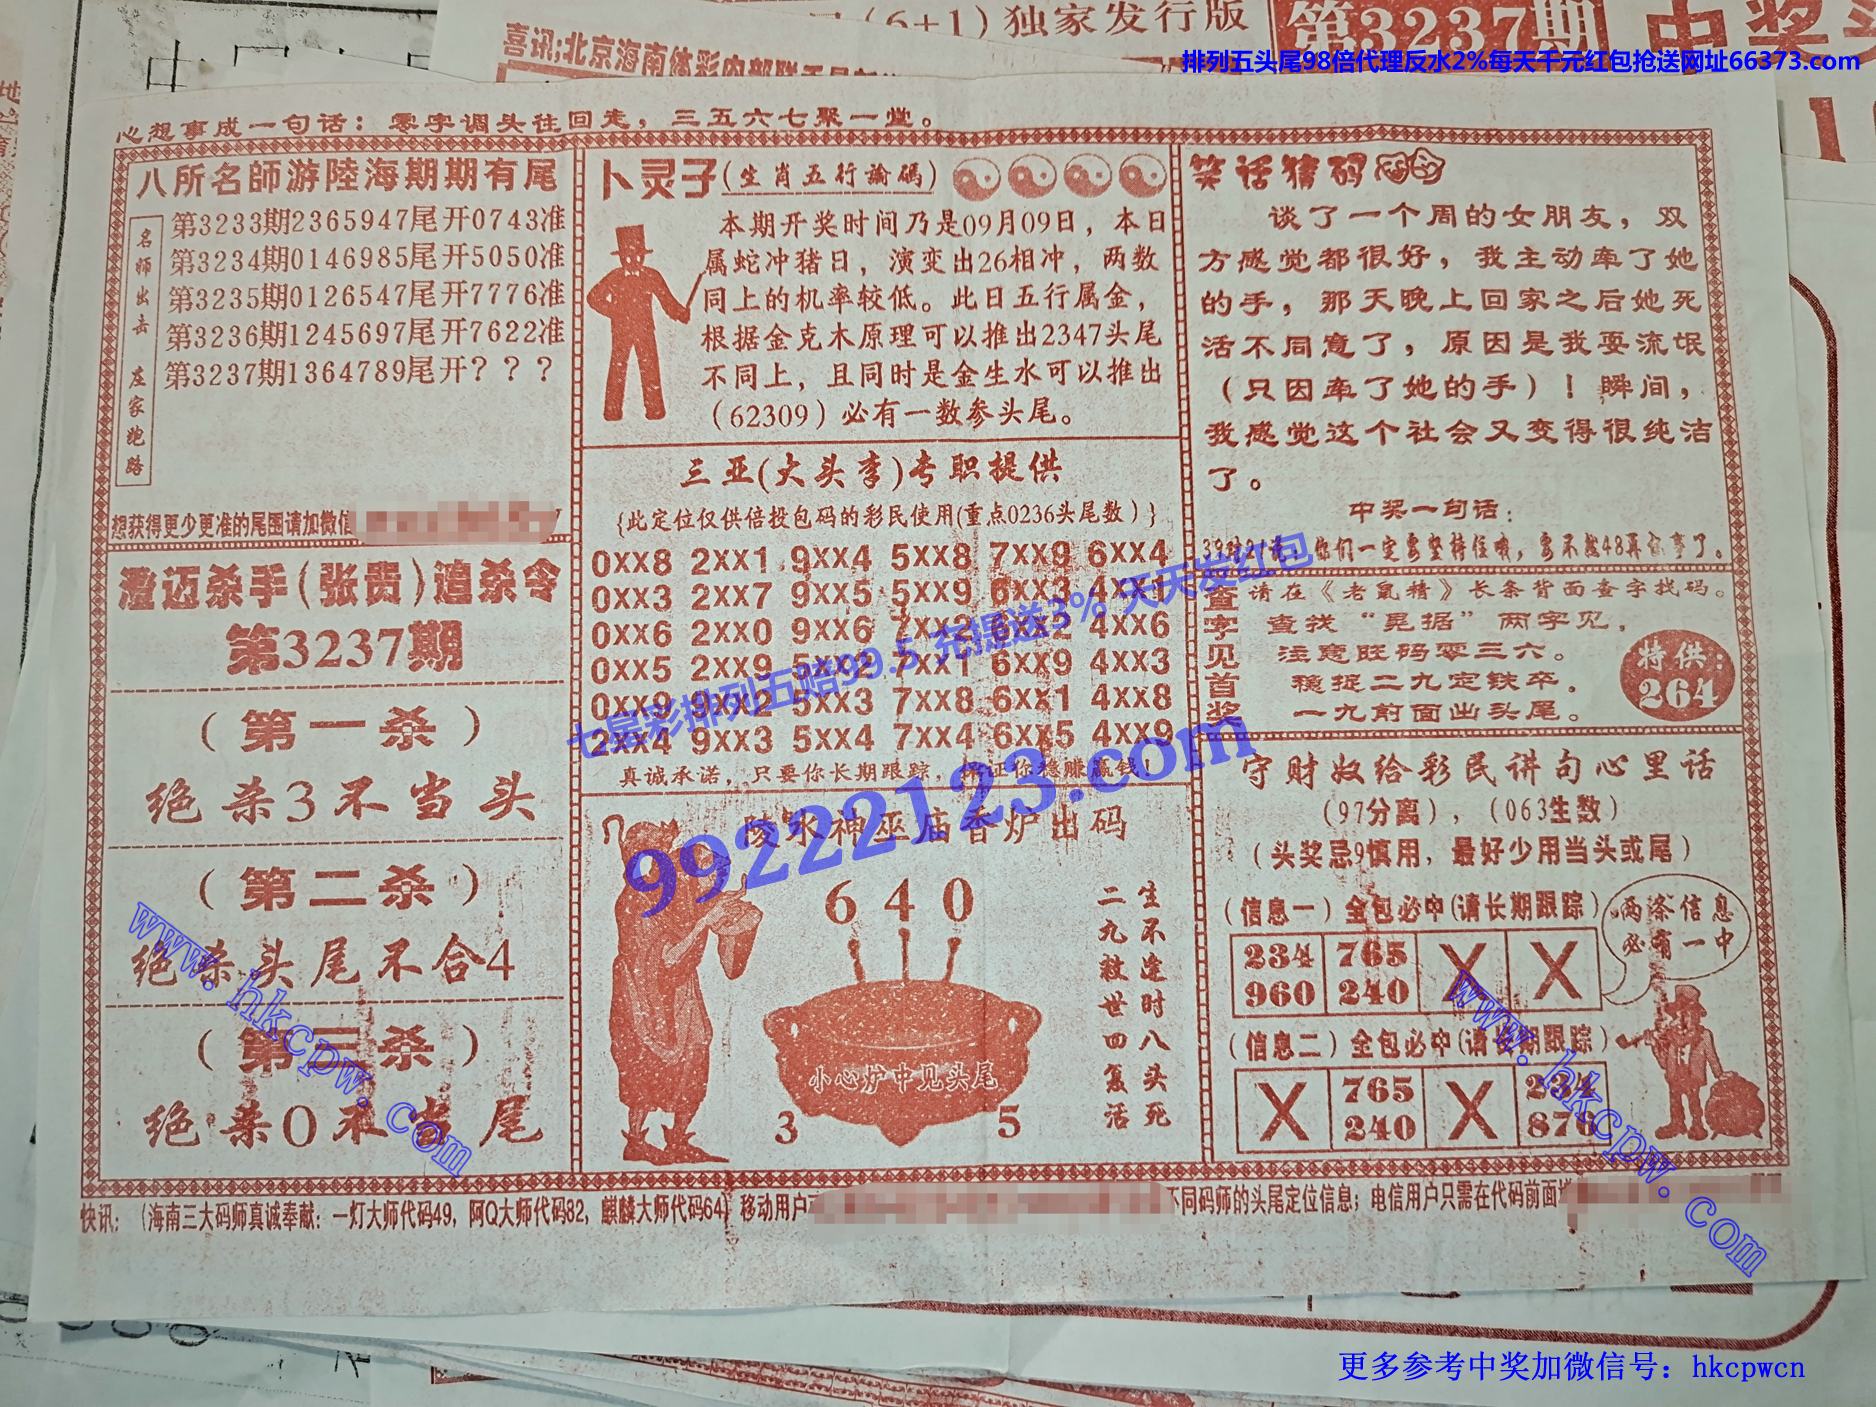 (6+1)独家发行版
第3237期
中奖
喜讯;北京海南体彩内部联
排列五头尾98倍代理反水2%每天千元红包抢送网址66373.com
心想事成一句话：零字调头往回走，三五六七聚一堂。
八所名師游陸海期期有尾
名师出击 左家跑路
第3233期2365947尾开0743准
第3234期0146985尾开5050准
第3235期0126547尾开7776准
第3236期1245697尾开7622准
第3237期1364789尾开？？？
想获得更少更准的尾围请加微信
澄迈杀手(张贵)追杀令
第3237期
（第一杀）
绝杀3不当头
（第二杀）
绝杀头尾不合4
（第三杀）
绝杀0不当尾
卜灵子(生肖五行論碼)
本期开奖时间乃是09月09日，本日
属蛇冲猪日，演变出26相冲，两数
同上的机率较低。此日五行属金，
根据金克木原理可以推出2347头尾
不同上，且同时是金生水可以推出
（62309）必有一数参头尾。
三亚(大头李)专职提供
{此定位仅供倍投包码的彩民使用(重点0236头尾数）}
0xx8 2xx1 9xx4 5xx8 7xx9 6xx4
0xx3 2xx7 9xx5 5xx9 6xx3 4xx1
0xx6 2xx0 9xx6 7xx2 6xx2 4xx6
0xx5 2xx9 5xx2 7xx1 6xx9 4xx3
0xx9 9xx2 5xx3 7xx8 6xx1 4xx8
2xx4 9xx3 5xx4 7xx4 6xx5 4xx9
真诚承诺，只要你长期跟踪，保证你稳赚赢钱！
陵水神巫庙香炉出码
640
小心炉中见头尾
3 5
生不逢时八头死
二九救世四复活
笑话猜码
谈了一个周的女朋友，双
方感觉都很好，我主动牵了她
的手，那天晚上回家之后她死
活不同意了，原因是我耍流氓
（只因牵了她的手）！瞬间，
我感觉这个社会又变得很纯洁
了。
中奖一句话：
你们一定要坚持住哦，要不然48再
查字见首奖
请在《老鼠精》长条背面查字找码。
查找“晃据”两字见，
注意旺码零三六。
稳捉二九定铁卒。
一九前面出头尾。
特供：
264
守财奴给彩民讲句心里话
（97分离），（063生数）
（头奖忌9慎用，最好少用当头或尾）
（信息一）全包必中(请长期跟踪)
234 765 X X
960 240
两条信息
必有一中
（信息二）全包必中(请长期跟踪)
X 765 X 234
240 876
快讯：（海南三大码师真诚奉献：一灯大师代码49，阿Q大师代码82，麒麟大师代码64）移动用户
不同码师的头尾定位信息；电信用户只需在代码前面
七星彩排列五赔99.5 充提送3% 天天发红包
99222123.com
www.hkcpw.com
www.hkcpw.com
更多参考中奖加微信号：hkcpwcn